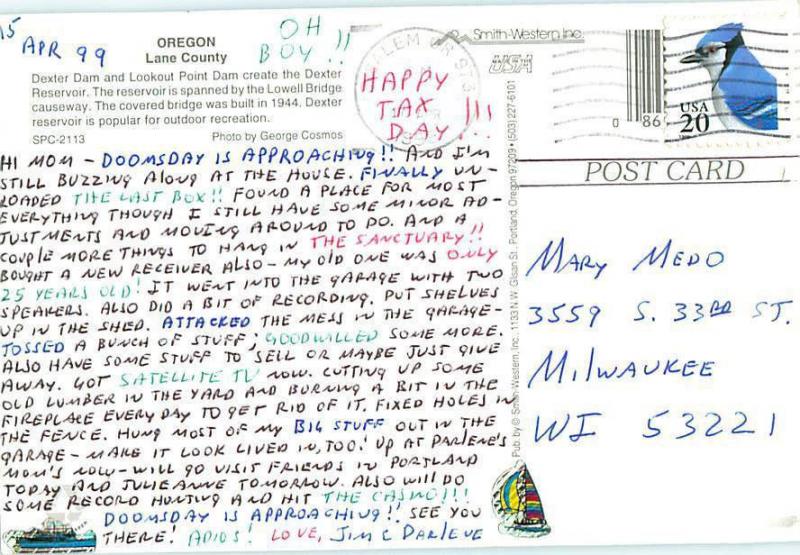 15
APR 99
OREGON
Lane County
OH
BOY!!
Dexter Dam and Lookout Point Dam create the Dexter
Reservoir. The reservoir is spanned by the Lowell Bridge
causeway. The covered bridge was built in 1944. Dexter
reservoir is popular for outdoor recreation.
SPC-2113 Photo by George Cosmos
HAPPY
TAX
DAY!!!
SALEM OR 973
Smith-Western Inc.
USA
0 86
USA
20
POST CARD
HI MOM - DOOMSDAY IS APPROACHING!! AND I'M
STILL BUZZING ALONG AT THE HOUSE. FINALLY UN-
LOADED THE LAST BOX!! FOUND A PLACE FOR MOST
EVERYTHING THOUGH I STILL HAVE SOME MINOR AD-
JUSTMENTS AND MOVING AROUND TO DO. AND A
COUPLE MORE THINGS TO HANG IN THE SANCTUARY!!
BOUGHT A NEW RECEIVER ALSO - MY OLD ONE WAS ONLY
25 YEARS OLD! IT WENT INTO THE GARAGE WITH TWO
SPEAKERS. ALSO DID A BIT OF RECORDING. PUT SHELVES
UP IN THE SHED. ATTACKED THE MESS IN THE GARAGE-
TOSSED A BUNCH OF STUFF; GOODWILLED SOME MORE.
ALSO HAVE SOME STUFF TO SELL OR MAYBE JUST GIVE
AWAY. GOT SATELLITE TV NOW. CUTTING UP SOME
OLD LUMBER IN THE YARD AND BURNING A BIT IN THE
FIREPLACE EVERY DAY TO GET RID OF IT. FIXED HOLES IN
THE FENCE. HUNG MOST OF MY BIG STUFF OUT IN THE
GARAGE - MAKE IT LOOK LIVED IN, TOO! UP AT DARLENE'S
MOM'S NOW - WILL GO VISIT FRIENDS IN PORTLAND
TODAY AND JULIEANNE TOMORROW. ALSO WILL DO
SOME RECORD HUNTING AND HIT THE CASINO!!!
DOOMSDAY IS APPROACHING!! SEE YOU
THERE! ADIOS! LOVE, JIM & DARLENE
Pub. by © Smith-Western, Inc., 1133 N.W. Glisan St., Portland, Oregon 97209 • (503) 227-6101
MARY MEDO
3559 S. 33RD ST.
MILWAUKEE
WI 53221